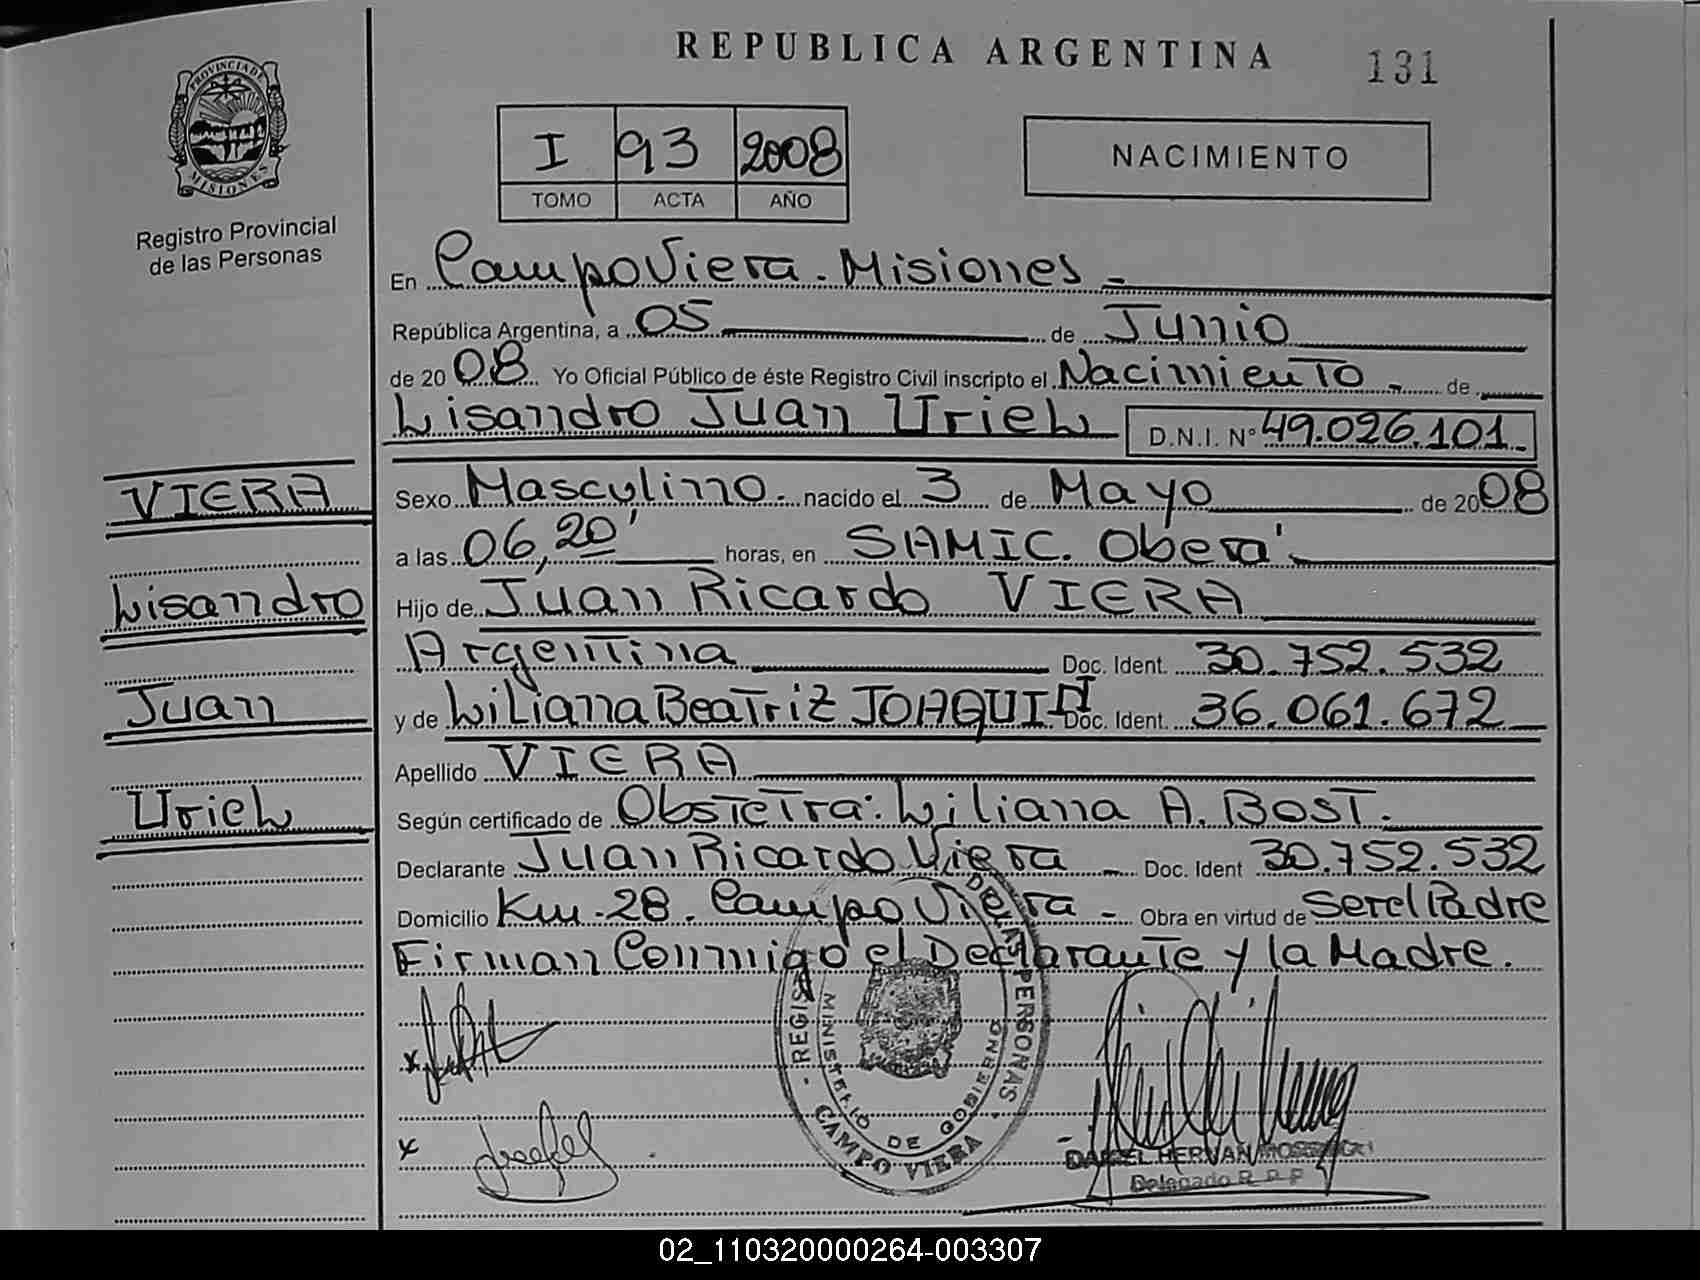 REPUBLICA ARGENTINA
131
PROVINCIA DE MISIONES
Registro Provincial
de las Personas
I 93 2008
TOMO ACTA AÑO
NACIMIENTO
En Campo Viera - Misiones -
República Argentina, a 05 de Junio
de 2008 Yo Oficial Público de éste Registro Civil inscripto el Nacimiento - de
Lisandro Juan Uriel D.N.I. Nº 49.026.101
VIERA
Lisandro
Juan
Uriel
Sexo Masculino. nacido el 3 de Mayo de 2008
a las 06,20' horas, en SAMIC. Oberá
Hijo de Juan Ricardo VIERA
Argentina Doc. Ident. 30.752.532
y de Liliana Beatriz JOAQUIN Doc. Ident. 36.061.672
Apellido VIERA
Según certificado de Obstetra: Liliana A. BOST.
Declarante Juan Ricardo Viera - Doc. Ident 30.752.532
Domicilio Km-28. Campo Viera - Obra en virtud de Ser el Padre
Firman Conmigo el Declarante y la Madre.
DE LAS PERSONAS
MINISTERIO DE GOBIERNO
CAMPO VIERA
DANIEL HERNAN
Delegado R.P.P
02_110320000264-003307